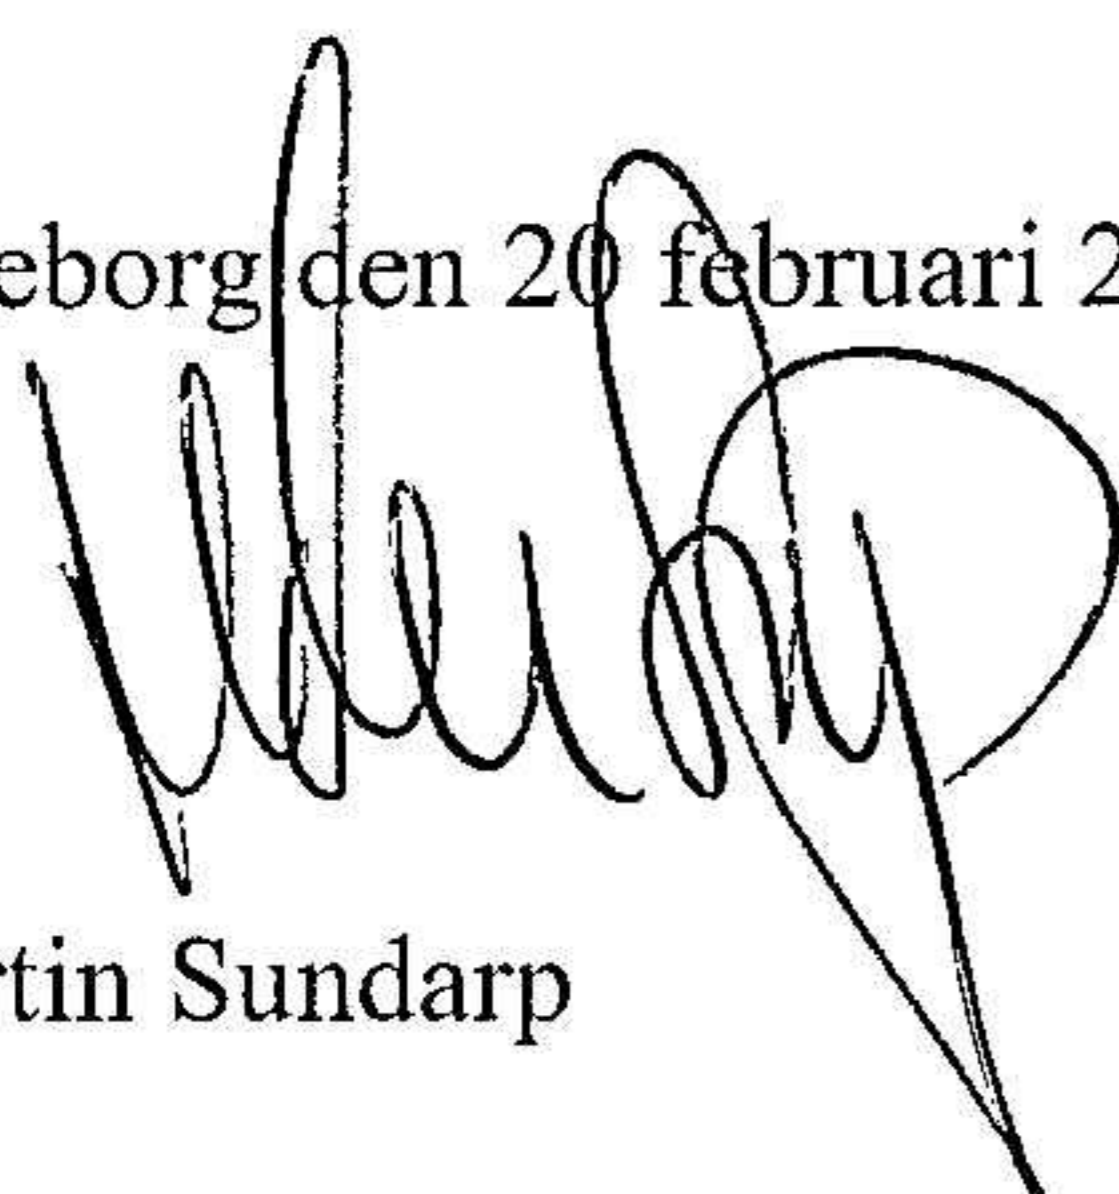 eborg den 20 februari 2
rtin Sundarp